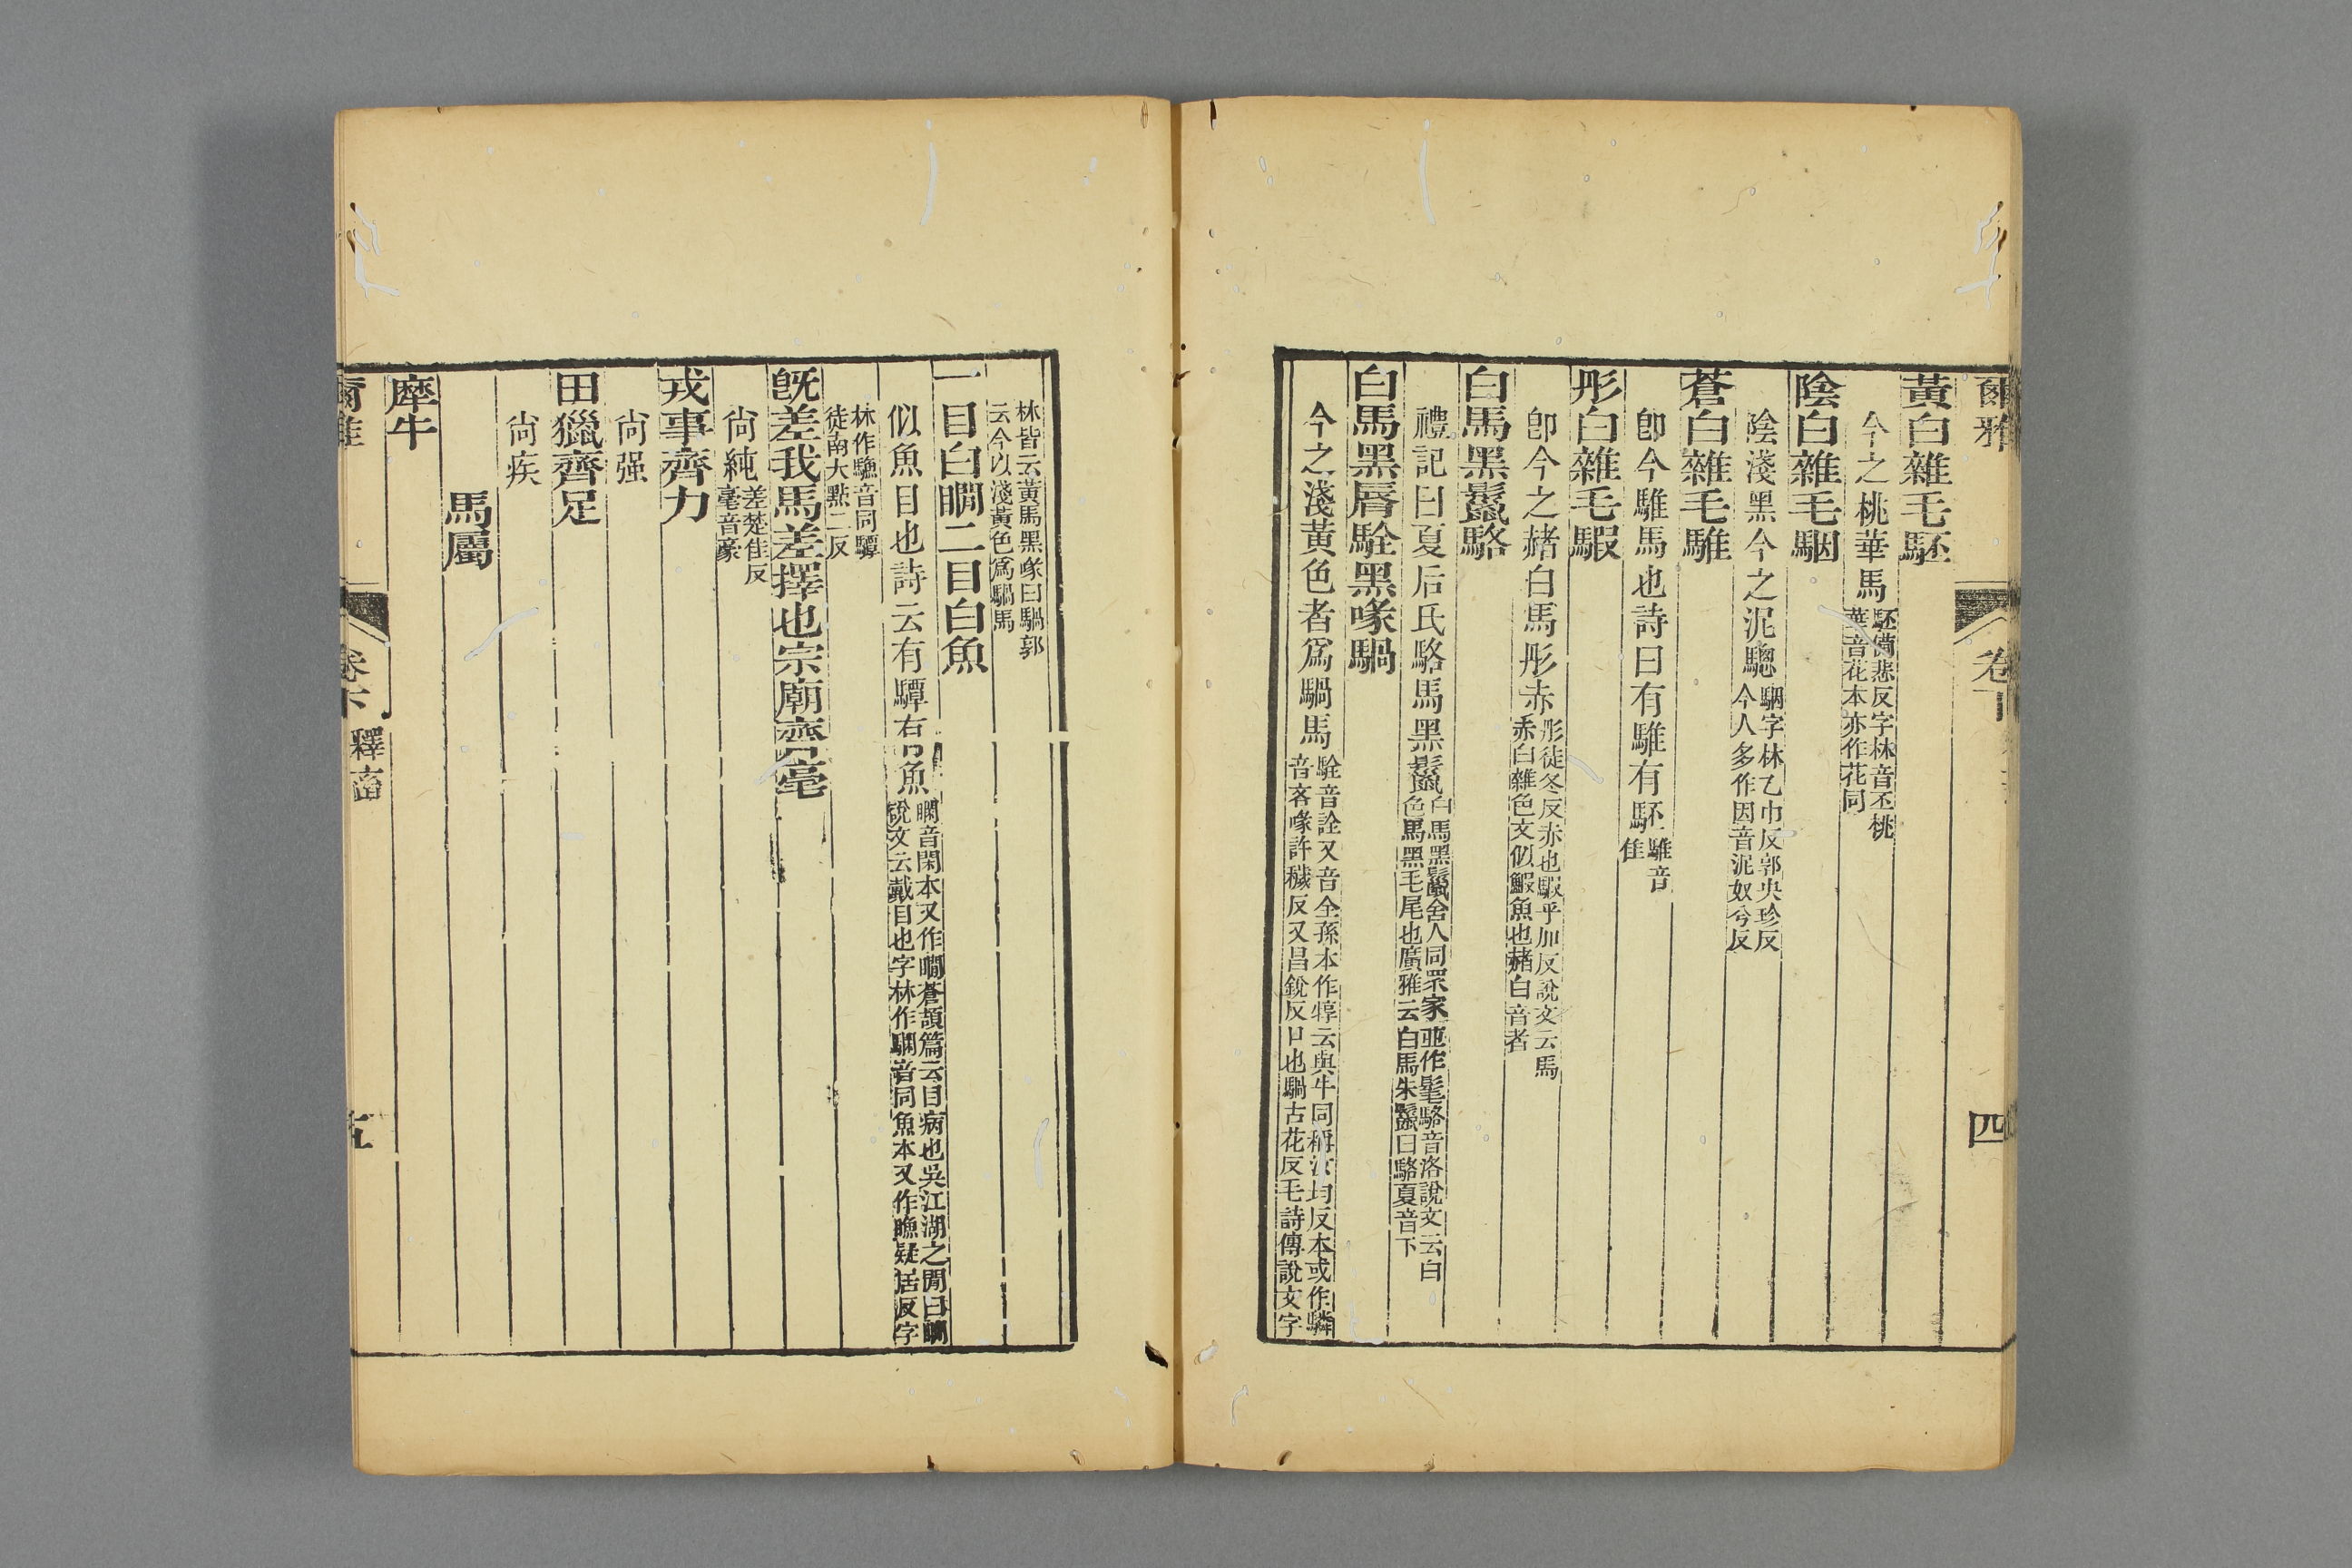 爾雅
卷下
四
黃白雜毛駓
今之桃華馬駓備悲反字林音丕桃
華音花本亦作花同
陰白雜毛駰
陰淺黑今之泥驄駰字林乙巾反郭央珍反
今人多作因音泥奴兮反
蒼白雜毛騅
卽今騅馬也詩曰有騅有駓騅音
隹
彤白雜毛騢
卽今之赭白馬彤赤彤徒冬反赤也騢乎加反說文云馬
赤白雜色文似鰕魚也赭白音者
白馬黑鬣駱
禮記曰夏后氏駱馬黑鬣白馬黑鬣舍人同眾家並作髦駱音洛說文云白
色馬黑毛尾也廣雅云白馬朱鬣曰駱夏音下
白馬黑脣駩黑喙騧
今之淺黃色者爲騧馬駩音詮又音全孫本作犉云與牛同稱汝均反本或作驎
音吝喙許穢反又昌銳反口也騧古花反毛詩傳說文字
林皆云黃馬黑喙曰騧郭
云今以淺黃色爲騧馬
一目白瞯二目白魚
似魚目也詩云有驔有魚瞯音閑本又作瞷蒼頡篇云目病也吳江湖之閒曰瞯
說文云戴目也字林作䮗音同魚本又作䁩疑居反字
林作䲣音同驔
徒南大點二反
旣差我馬差擇也宗廟齊毫
尙純差楚佳反
毫音豪
戎事齊力
尙强
田獵齊足
尙疾
馬屬
犘牛
爾雅
卷下
釋畜
五